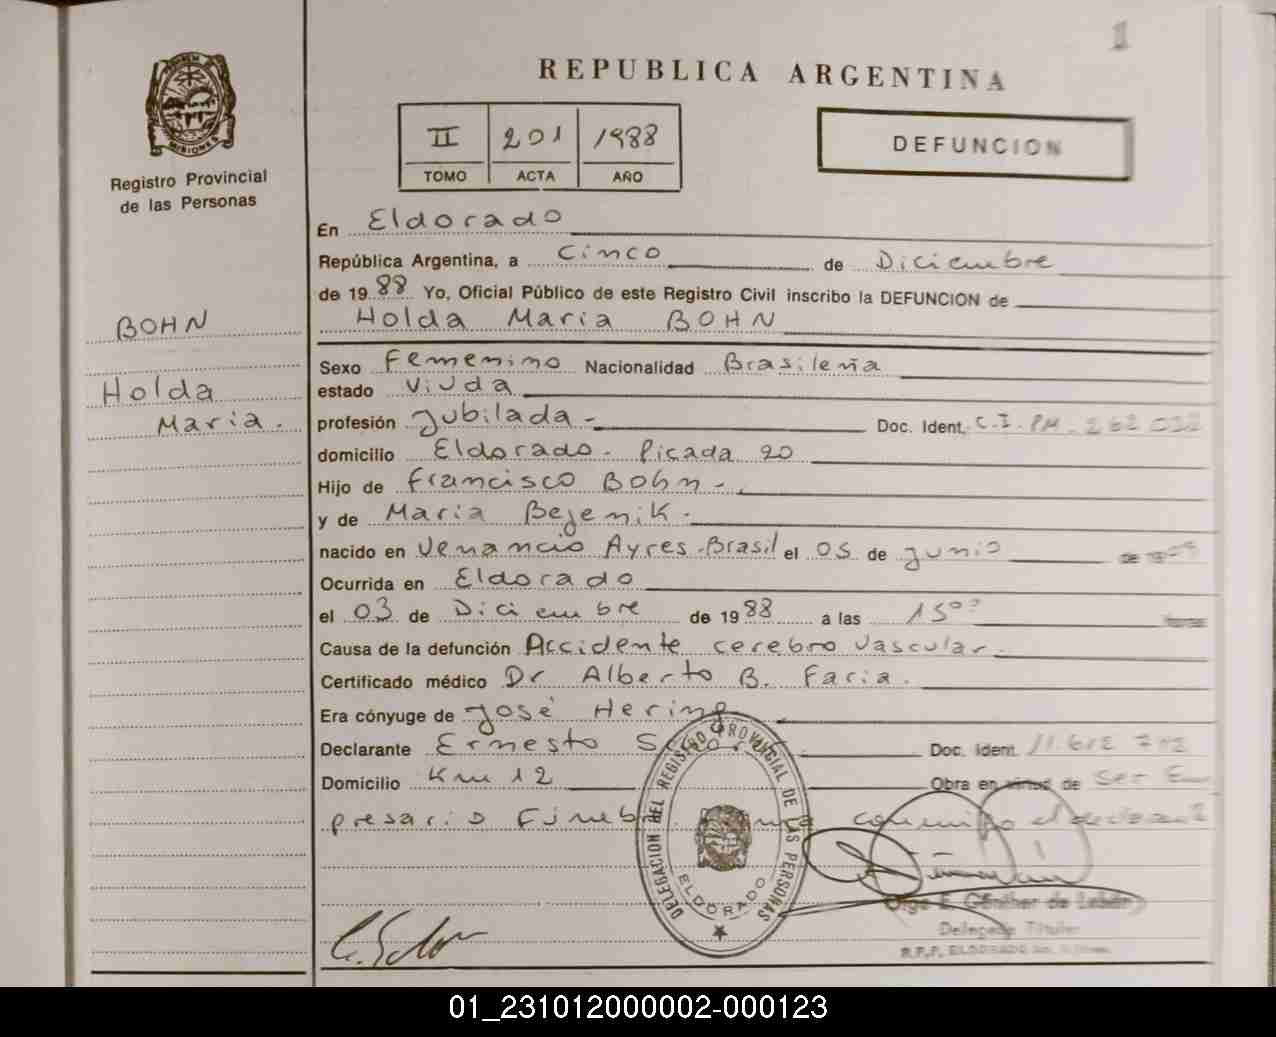 1
REPUBLICA ARGENTINA
PROVINCIA DE MISIONES
Registro Provincial
de las Personas
II 201 1988
TOMO ACTA AÑO
DEFUNCION
En Eldorado
República Argentina, a Cinco de Diciembre
de 1988 Yo, Oficial Público de este Registro Civil inscribo la DEFUNCION de
BOHN
Holda
Maria.
Holda Maria BOHN
Sexo Femenino Nacionalidad Brasileña
estado Viuda
profesión Jubilada.- Doc. Ident. C.I. PM. 262
domicilio Eldorado. Picada 20
Hijo de Francisco Bohn -.
y de Maria Bejenik.
nacido en Venancio Ayres-Brasil el 05 de Junio de
Ocurrida en Eldorado
el 03 de Diciembre de 1988 a las 15 horas
Causa de la defunción Accidente cerebro vascular.
Certificado médico Dr Alberto B. Faria.
Era cónyuge de José Hering
Declarante Ernesto Doc. Ident. 11.612
Domicilio Km 12 Obra en virtud de Ser Em
presario Fúnebre. conmigo el declarante
DELEGACION DEL REGISTRO PROVINCIAL DE LAS PERSONAS
ELDORADO
Olga E. Günther de
Delegada Titular
R.P.P. ELDORADO
01_231012000002-000123